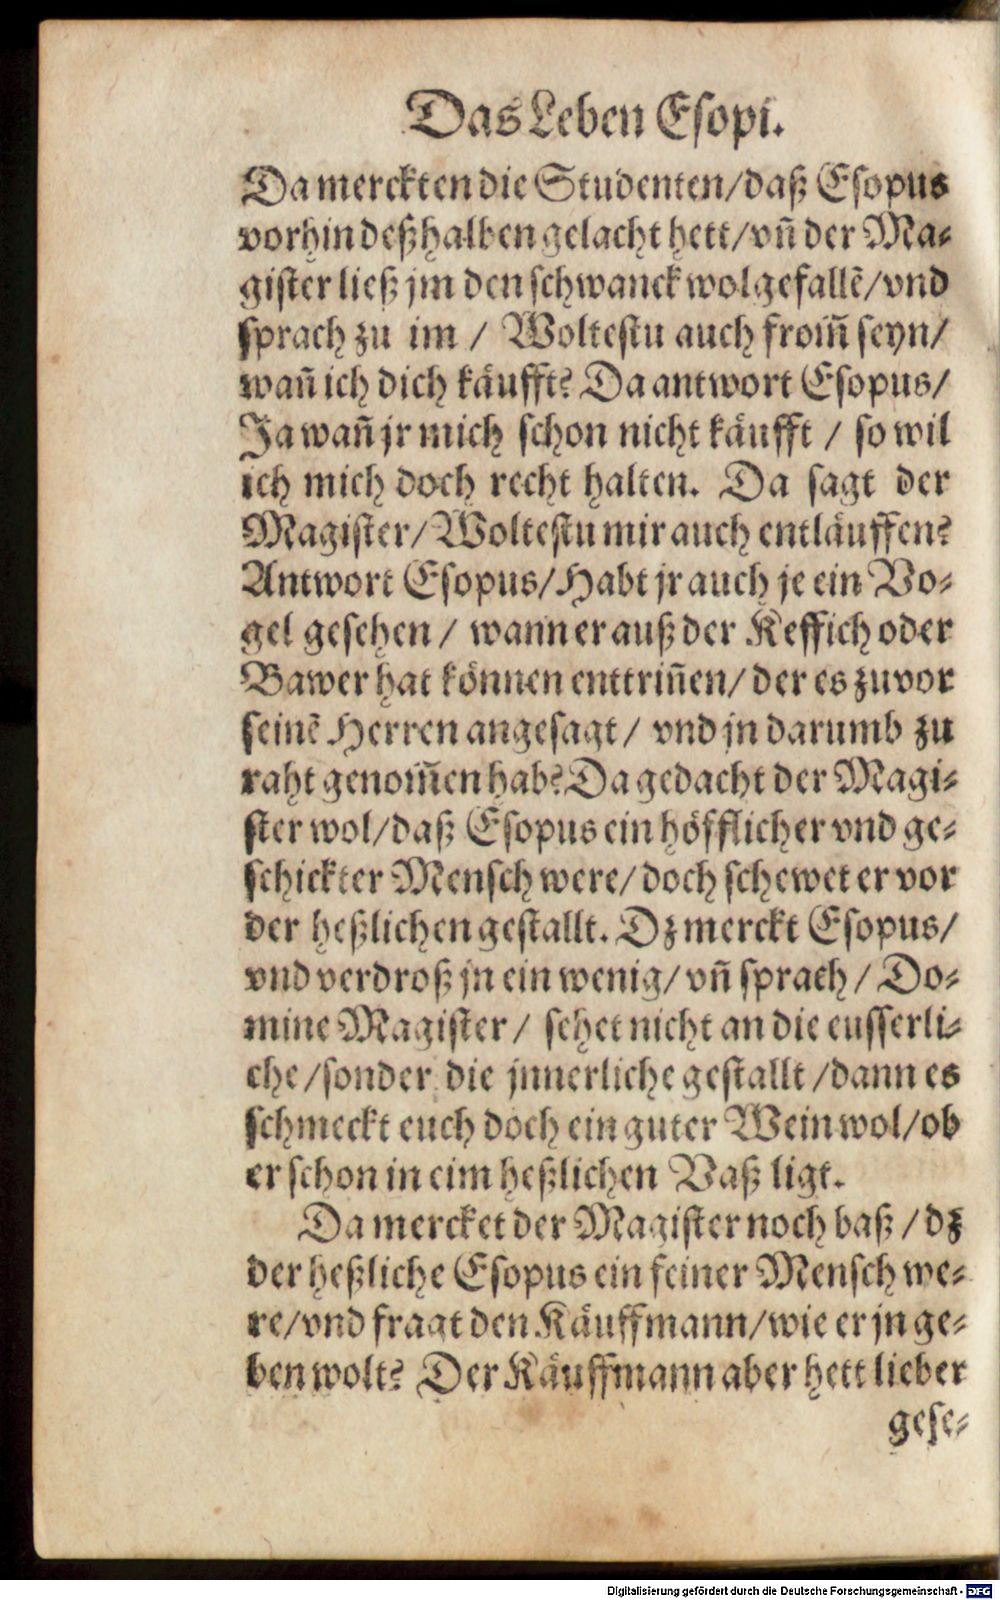 Das Leben Esopi.
Da merckten die Studenten/daß Esopus
vorhin deßhalben gelacht hett/vñ der Ma-
gister ließ jm den schwanck wolgefallẽ/vnd
sprach zu im / Woltestu auch from̃ seyn/
wañ ich dich käufft? Da antwort Esopus/
Ja wañ jr mich schon nicht käufft / so wil
ich mich doch recht halten. Da sagt der
Magister/Woltestu mir auch entläuffen?
Antwort Esopus/Habt jr auch je ein Vo-
gel gesehen / wann er auß der Keffich oder
Bawer hat können enttriñen/ der es zuvor
seinẽ Herren angesagt / vnd jn darumb zu
raht genom̃en hab? Da gedacht der Magi-
ster wol/daß Esopus ein höfflicher vnd ge-
schickter Mensch were/doch schewet er vor
der heßlichen gestallt. Dz merckt Esopus/
vnd verdroß jn ein wenig/vñ sprach / Do-
mine Magister / sehet nicht an die eusserli-
che /sonder die jnnerliche gestallt /dann es
schmeckt euch doch ein guter Wein wol/ob
er schon in eim heßlichen Vaß ligt.
Da mercket der Magister noch baß / dz
der heßliche Esopus ein feiner Mensch we-
re/vnd fragt den Käuffmann/wie er jn ge-
ben wolt? Der Käuffmann aber hett lieber
gese-
Digitalisierung gefördert durch die Deutsche Forschungsgemeinschaft - DFG